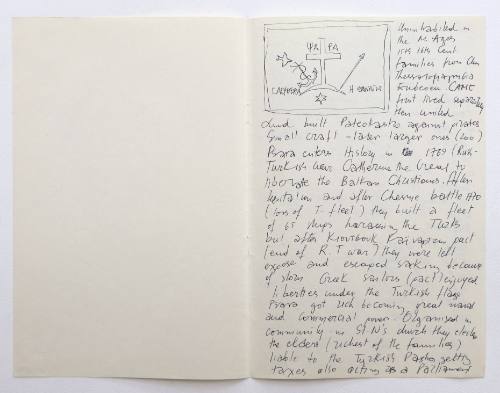 Uninhabited in
the M. Ages
15th 16th Cent
families from Chi
Thessalo
Euboean CAME
first lived separately
then united
ΨΑ ΡΑ
and built Paleokastro against pirates
Small craft - later larger ones (200)
Psara enters History in 1769 (Rush-
Turkish war) Catherine the Great to
liberate the Balkan Christians. After
and after Chesme battle 1770
(loss of T. fleet) they built a fleet
of ships harassing the Turks
but after Kaynargi pact
(end of R. T war) they were left
expose and escaped sacking because
of Greek sailors (pact) enjoyed
liberties under the Turkish flag
Psara got rich becoming great naval
and commercial power. Organised in
community in St N's church they elected
the elders (richest of the families)
liable to the Turkish Pasha getting
taxes also acting as a Parliament